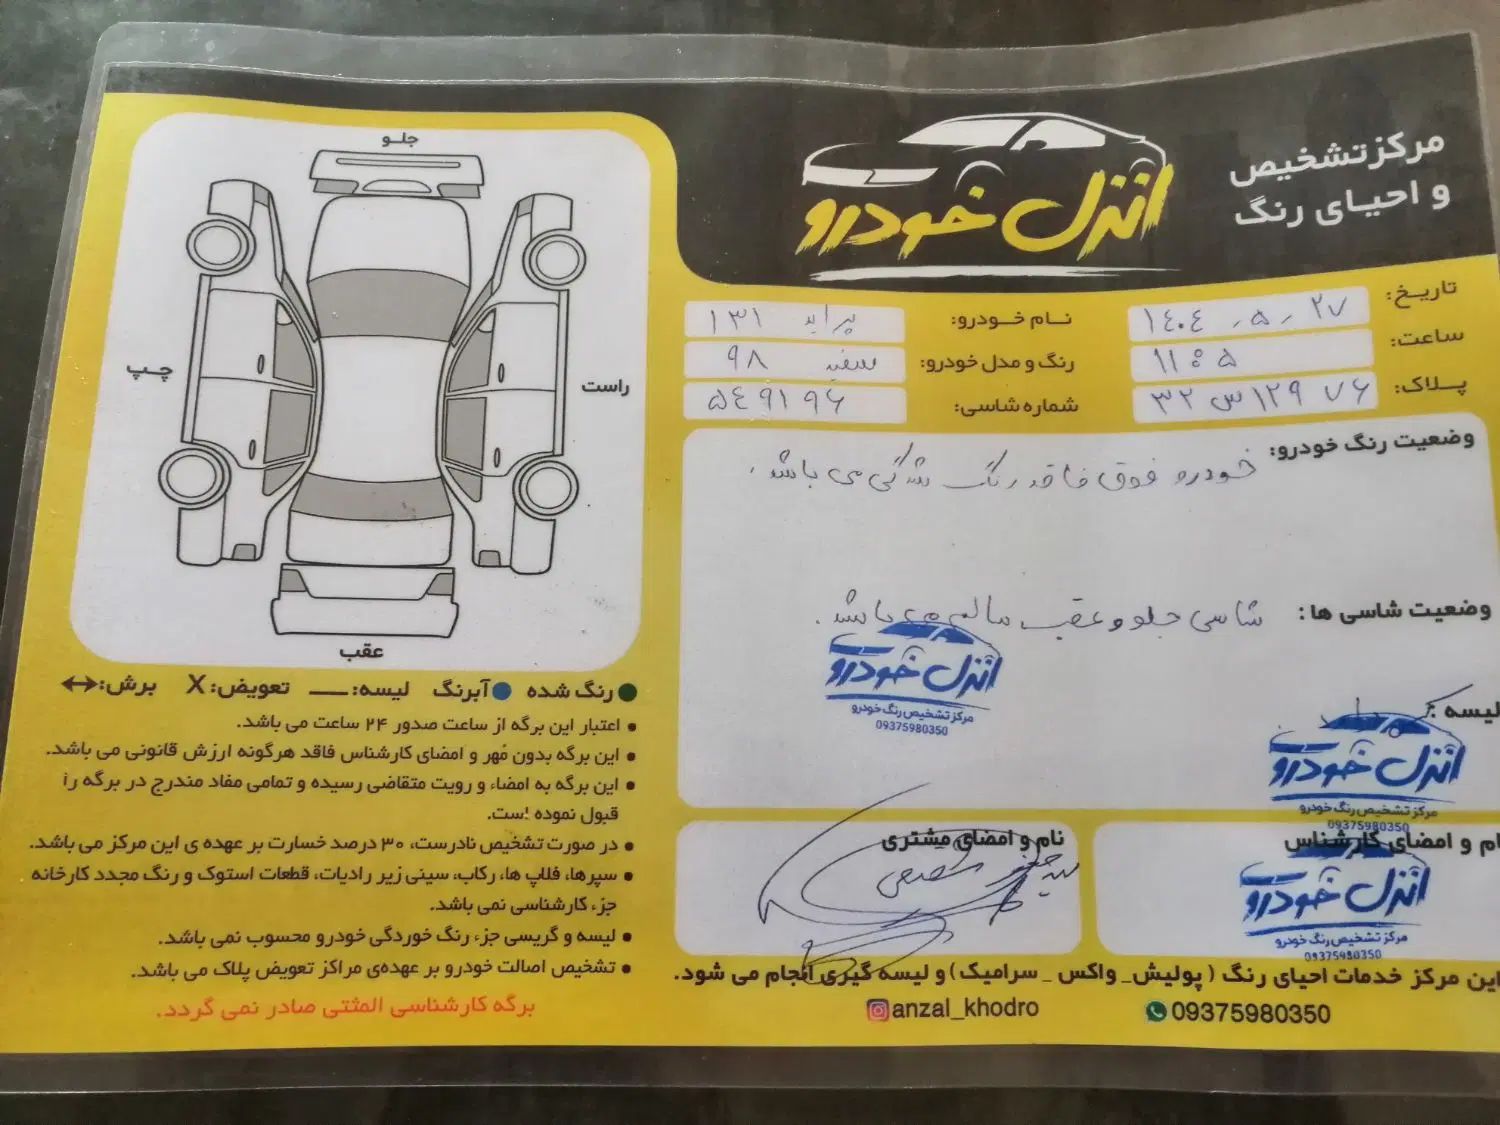 مرکز تشخیص
و احیای رنگ
انزل خودرو
تاریخ: ۱۴۰۴/۵/۲۷
نام خودرو: پراید ۱۳۱
ساعت: ۱۱:۰۵
رنگ و مدل خودرو: سفید ۹۸
پلاک: ۳۲ س ۱۲۹ ۷۶
شماره شاسی: ۵۴۹۱۹۶
وضعیت رنگ خودرو: خودرو فوق فاقد رنگ شدگی می باشد.
وضعیت شاسی ها: شاسی جلو و عقب سالم می باشد.
انزل خودرو
مرکز تشخیص رنگ خودرو
09375980350
لیسه:
انزل خودرو
مرکز تشخیص رنگ خودرو
09375980350
نام و امضای کارشناس
انزل خودرو
مرکز تشخیص رنگ خودرو
09375980350
نام و امضای مشتری
جلو
چپ
راست
عقب
رنگ شده آبرنگ لیسه: تعویض: X برش:
• اعتبار این برگه از ساعت صدور ۲۴ ساعت می باشد.
• این برگه بدون مُهر و امضای کارشناس فاقد هرگونه ارزش قانونی می باشد.
• این برگه به امضاء و رویت متقاضی رسیده و تمامی مفاد مندرج در برگه را
قبول نموده است.
• در صورت تشخیص نادرست، ۳۰ درصد خسارت بر عهده ی این مرکز می باشد.
• سپرها، فلاپ ها، رکاب، سینی زیر رادیات، قطعات استوک و رنگ مجدد کارخانه
جزء کارشناسی نمی باشد.
• لیسه و گریسی جزء رنگ خوردگی خودرو محسوب نمی باشد.
• تشخیص اصالت خودرو بر عهده‌ی مراکز تعویض پلاک می باشد.
برگه کارشناسی المثنی صادر نمی گردد.
این مرکز خدمات احیای رنگ ( پولیش_ واکس _ سرامیک) و لیسه گیری انجام می شود.
anzal_khodro
09375980350